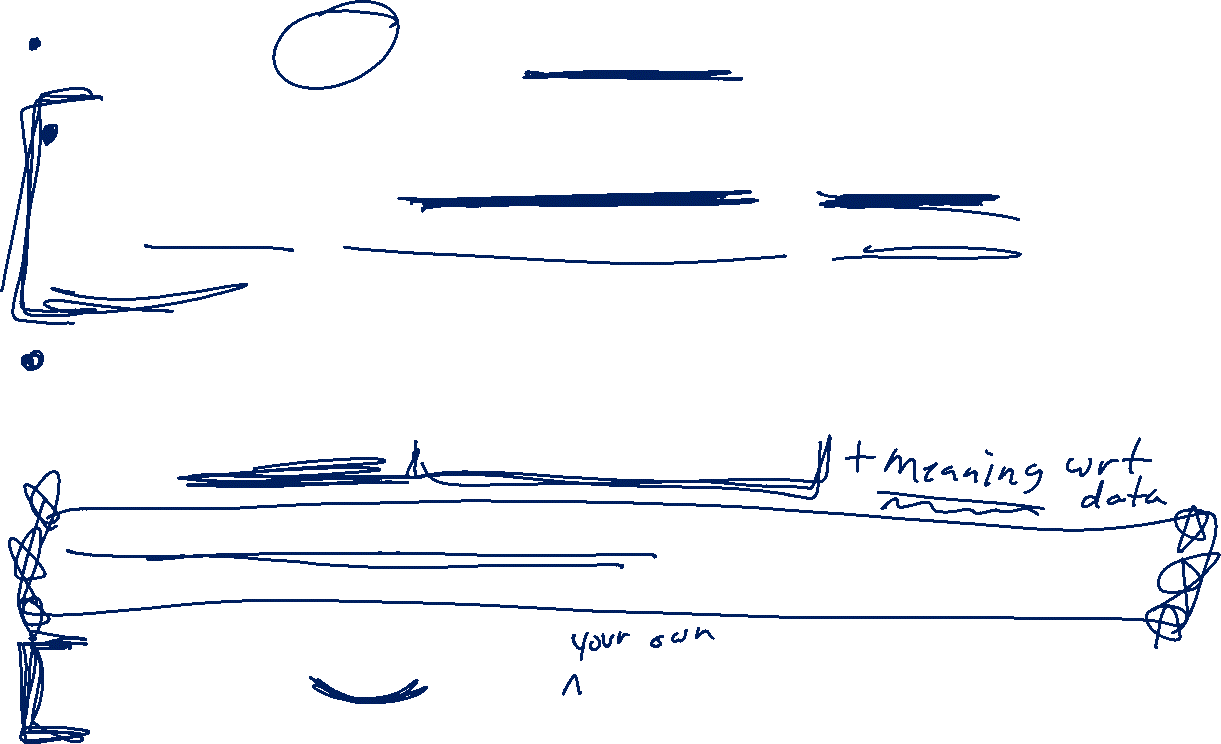 + meaning wrt
data
your own
^